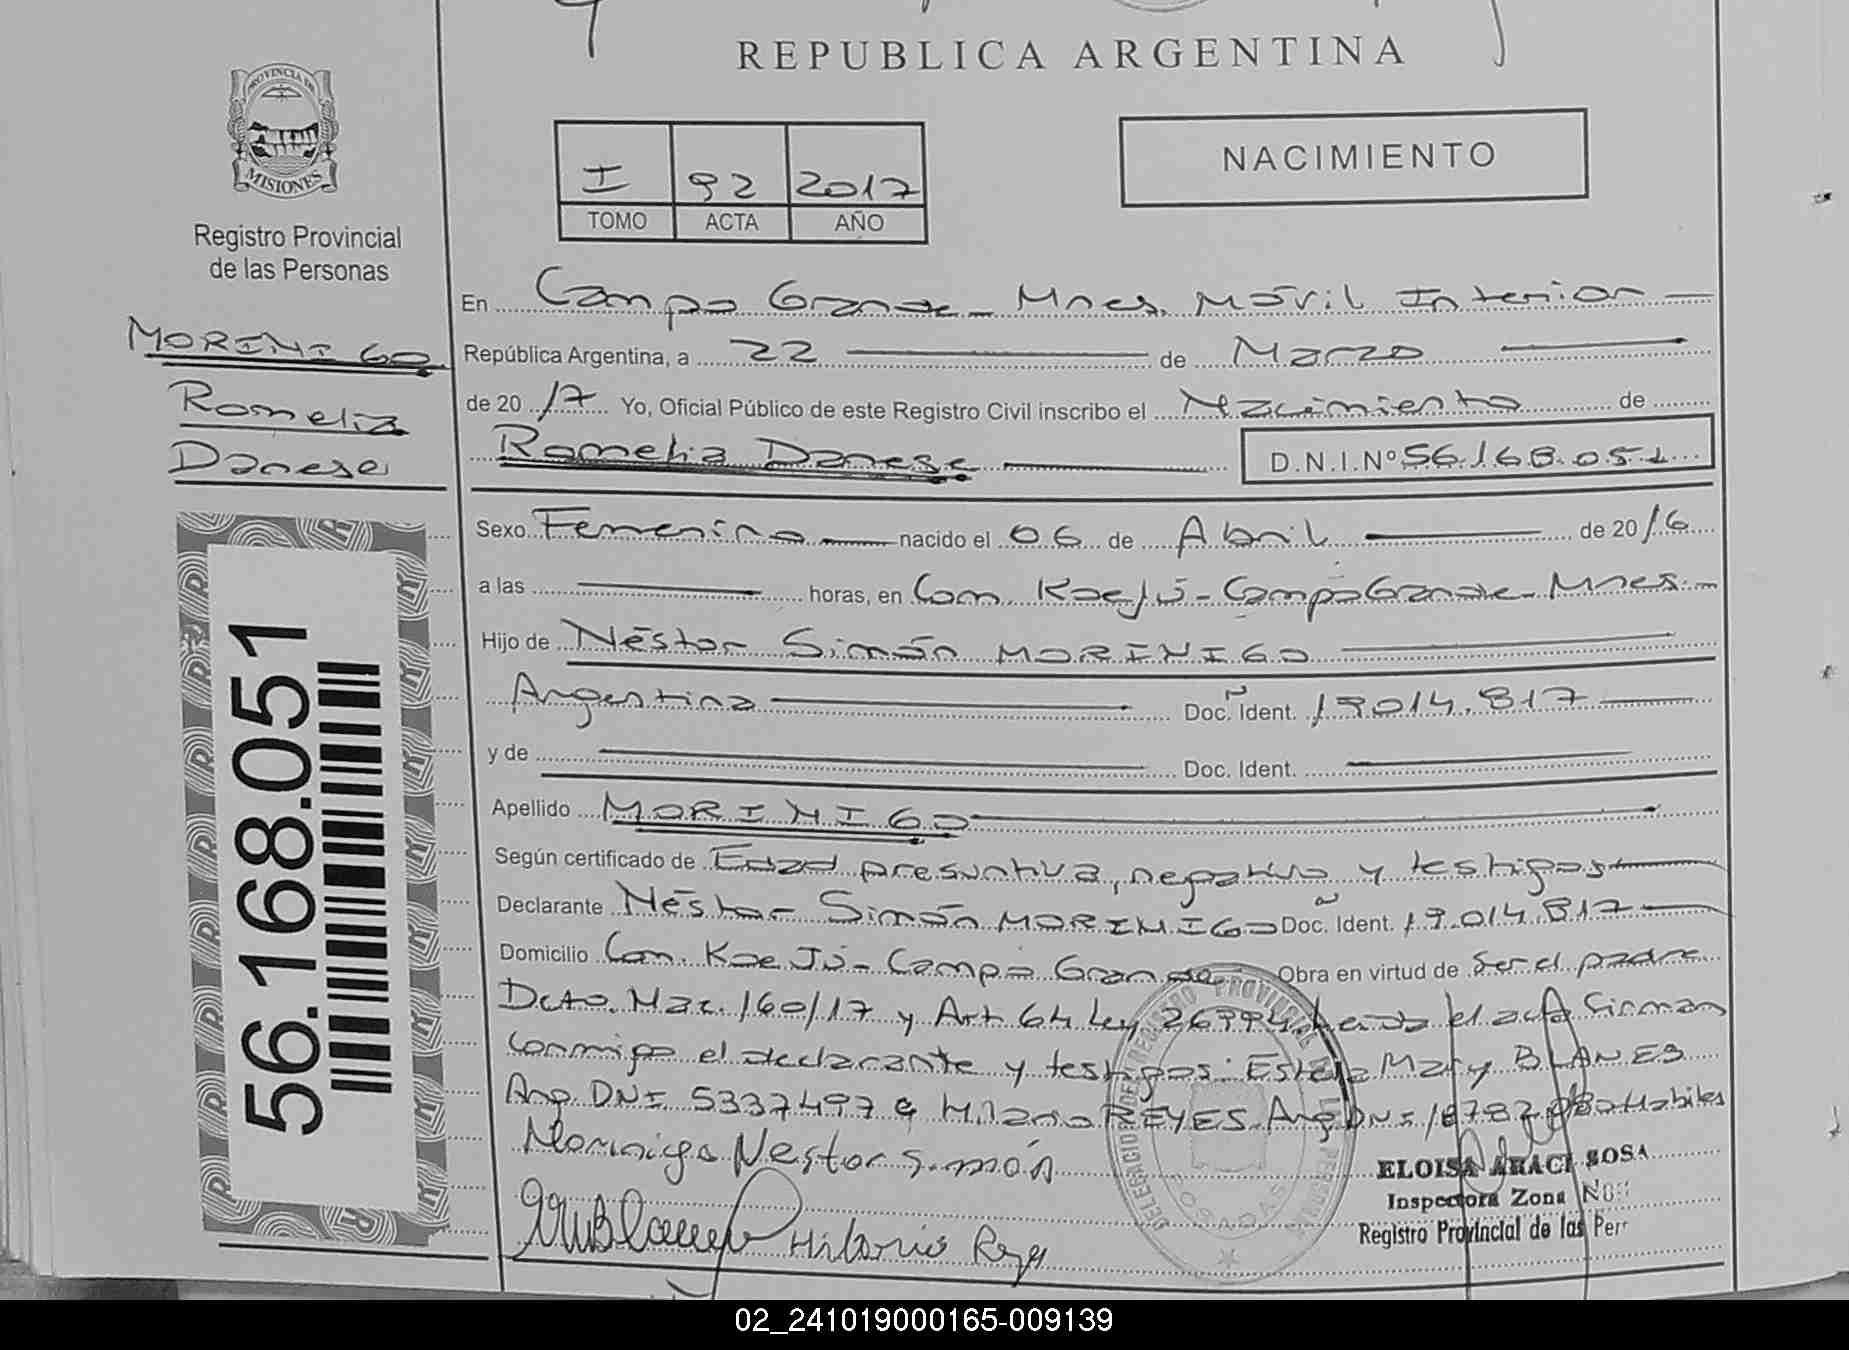 REPUBLICA ARGENTINA
PROVINCIA DE
MISIONES
Registro Provincial
de las Personas
MORINIGO
Romelia
Danesa
56.168.051
I 92 2017
TOMO ACTA AÑO
NACIMIENTO
En Campo Grande - Mnes. Móvil Interior
República Argentina, a 22 de Marzo
de 2017 Yo, Oficial Público de este Registro Civil inscribo el Nacimiento de
Romelia Danesa D.N.I.Nº 56.168.051
Sexo Femenino nacido el 06 de Abril de 2016
a las horas, en Com. Kaejú - Campo Grande - Mnes.
Hijo de Néstor Simón MORINIGO
Argentina Doc. Ident. 19.014.817
y de Doc. Ident.
Apellido MORINIGO
Según certificado de Edad presuntiva, negativo y testigos
Declarante Néstor Simón MORINIGO Doc. Ident. 19.014.817
Domicilio Com. Kaejú - Campo Grande Obra en virtud de ser el padre
Dcto. Nac. 160/17 y Art. 64 Ley 26994. Leida el acta firman
conmigo el declarante y testigos: Estela Mary BLANES
Arg. DNI 5337497 Hilario REYES Arg DNI Habiles
Morinigo Nestor Simón
Hilario Reyes
ELOISA ARACI SOSA
Inspectora Zona
Registro Provincial de las Per
02_241019000165-009139